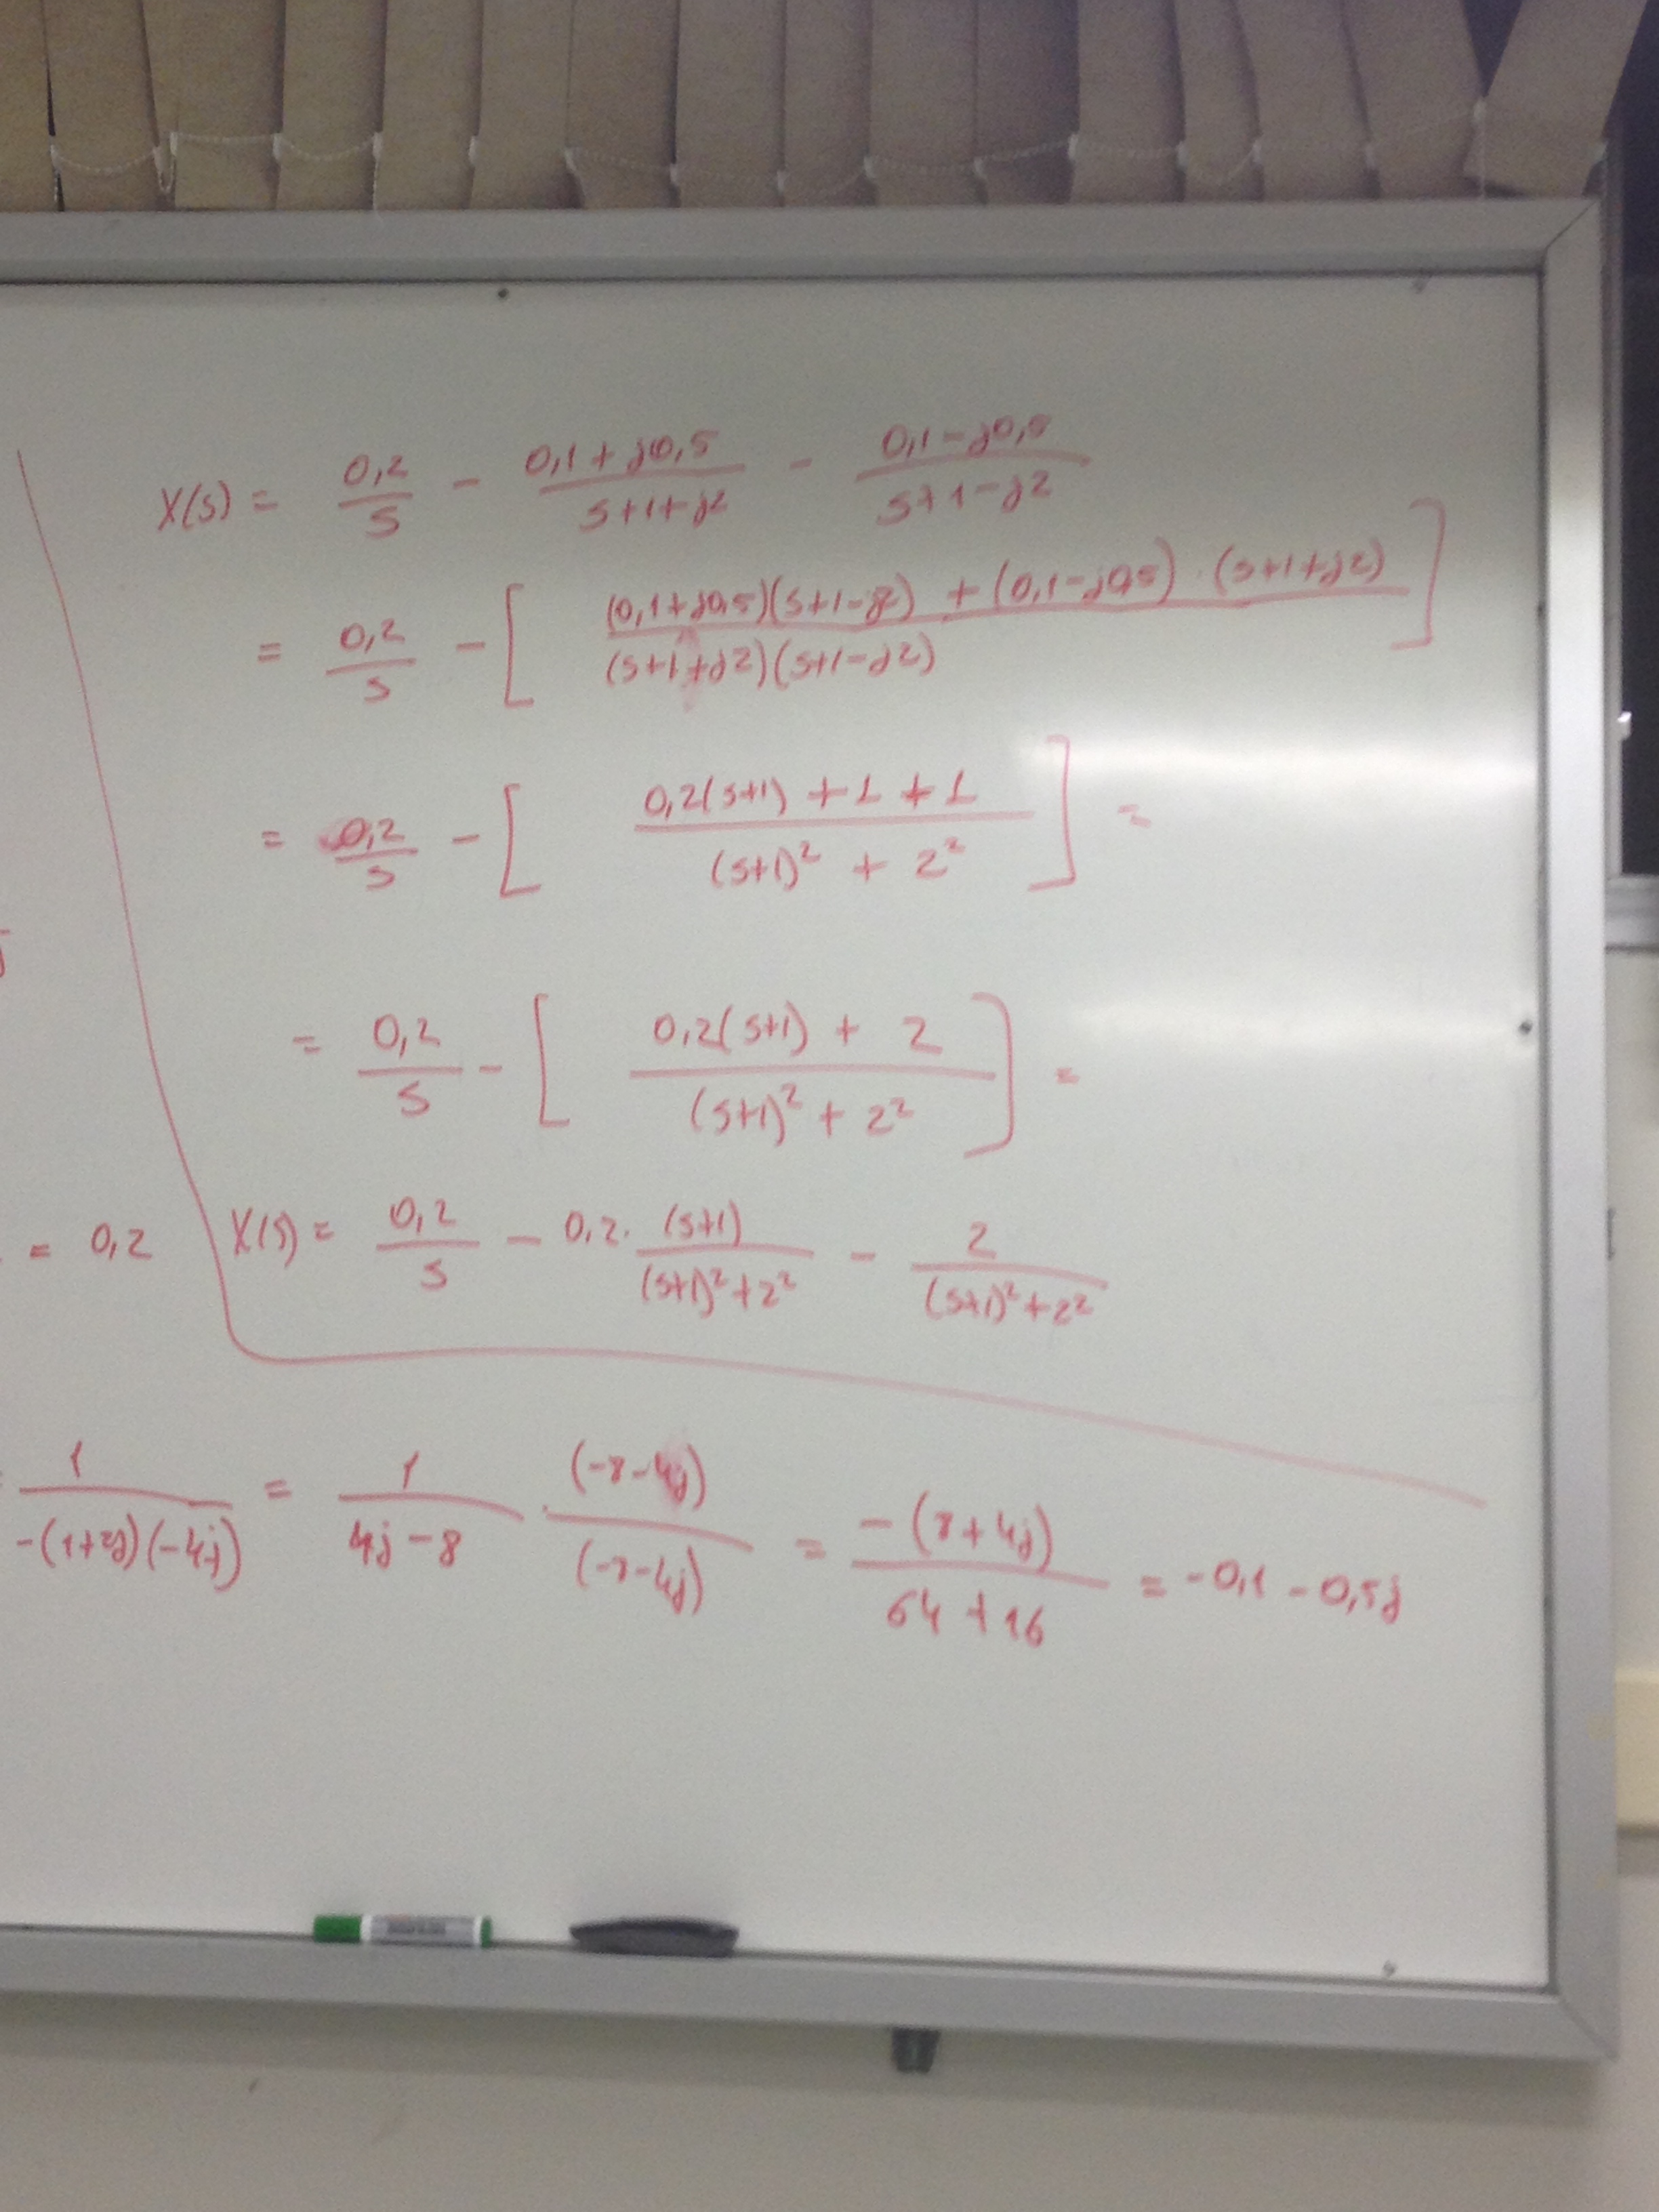 X(s) = 0,2/s - (0,1+j0,5)/(s+1+j2) - (0,1-j0,5)/(s+1-j2)
= 0,2/s - [ ((0,1+j0,5)(s+1-j2) + (0,1-j0,5)·(s+1+j2))/((s+1+j2)(s+1-j2)) ]
= 0,2/s - [ (0,2(s+1) + 1 + 1)/((s+1)² + 2²) ] =
= 0,2/s - [ (0,2(s+1) + 2)/((s+1)² + 2²) ] =
= 0,2
X(s) = 0,2/s - 0,2· (s+1)/((s+1)²+2²) - 2/((s+1)²+2²)
= 1/(-(1+2j)(-4j)) = 1/(4j-8) · (-8-4j)/(-8-4j) = -(8+4j)/(64+16) = -0,1 - 0,5j